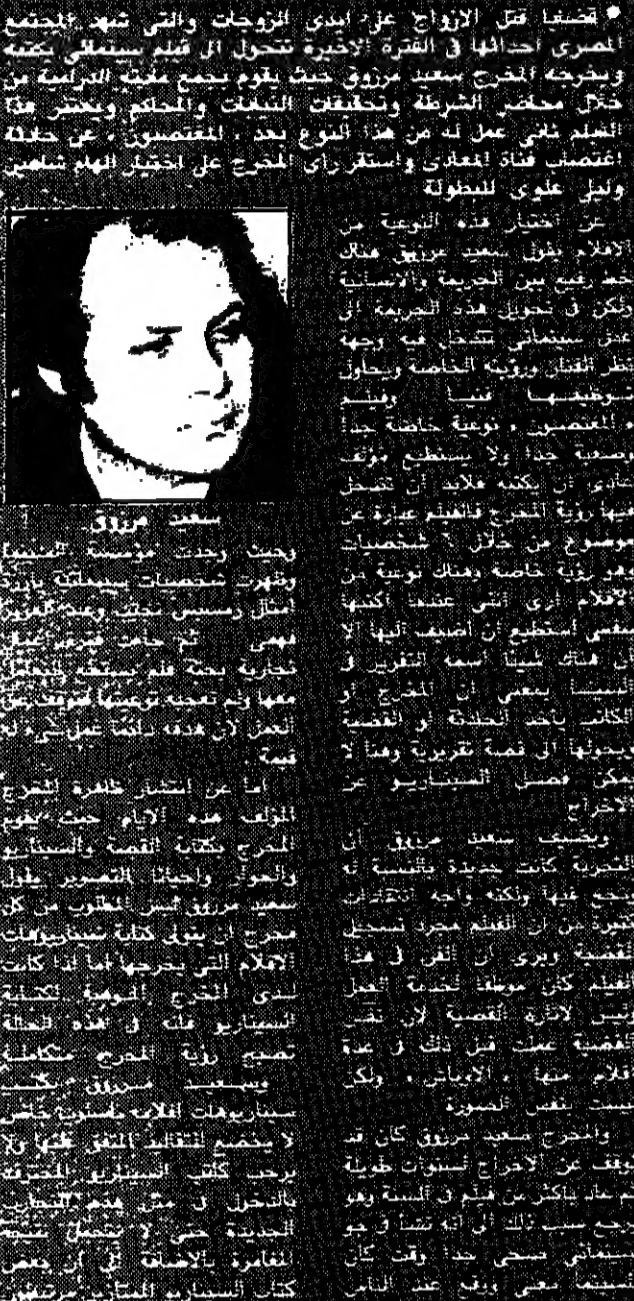 • قضايا قتل الازواج على ايدى الزوجات والتى شهد المجتمع
المصرى احداثها فى الفترة الاخيرة تتحول الى فيلم سينمائى يكتبه
ويخرجه المخرج سعيد مرزوق حيث يقوم بجمع مادته الدرامية من
خلال محاضر الشرطة وتحقيقات النيابات والمحاكم ويعتبر هذا
الفيلم ثانى عمل له من هذا النوع بعد « المغتصبون » عن حادثة
اغتصاب فتاة المعادى واستقر رأى المخرج على اختيار الهام شاهين
وليلى علوى للبطولة
عن اختيار هذه النوعية من
الافلام يقول سعيد مرزوق هناك
خط رفيع بين الجريمة والانسانية
ولكن فى تحويل هذه الجريمة الى
عمل سينمائى تتدخل فيه وجهة
نظر الفنان ورؤيته الخاصة ويحاول
توظيفها فنيا وفيلم
« المغتصبون » نوعية خاصة جدا
وصعبة جدا ولا يستطيع مؤلف
عادى ان يكتبه فلابد ان تتدخل
فيها رؤية المخرج فالفيلم عبارة عن
موضوع من خلال ٦ شخصيات
وهو رؤية خاصة وهناك نوعية من
الافلام ارى اننى عندما اكتبها
بنفسى استطيع ان اضيف اليها الا
ان هناك شيئا اسمه التقرير فى
السينما بمعنى ان المخرج او
الكاتب يأخذ الحادثة او القصة
ويحولها الى قصة تقريرية وهنا لا
يمكن فصل السيناريو عن
الاخراج
ويضيف سعيد مرزوق ان
التجربة كانت جديدة بالنسبة له
نجح فيها ولكنه واجه انتقادات
كثيرة من ان الفيلم مجرد تسجيل
للقصة ويرى ان الفن فى هذا
الفيلم كان موظفا لخدمة العمل
وليس لاثارة القضية لان نفس
القضية عملت قبل ذلك فى عدة
افلام منها « الاوباش » ولكن
ليست بنفس الصورة
والمخرج سعيد مرزوق كان قد
توقف عن الاخراج لسنوات طويلة
ثم عاد باكثر من فيلم فى السنة وهو
يرجع سبب ذلك الى انه نشأ فى جو
سينمائى صحى جدا وقت كان
للسينما معنى ووقع عند الناس
سعيد مرزوق
وحيث وجدت مؤسسة السينما
وظهرت شخصيات سينمائية بارزة
امثال رمسيس نجيب وعبد العزيز
فهمى ثم جاءت فترة
تجارية بحتة فلم يستطع التعامل
معها ولم تعجبه نوعيتها فتوقف عن
العمل لان هدفه دائما عمل شىء له
قيمة
اما عن انتشار ظاهرة المخرج
المؤلف هذه الايام حيث يقوم
المخرج بكتابة القصة والسيناريو
والحوار واحيانا التصوير يقول
سعيد مرزوق ليس المطلوب من كل
مخرج ان يتولى كتابة سيناريوهات
الافلام التى يخرجها اما اذا كانت
لدى المخرج الموهبة لكتابة
السيناريو فانه فى هذه الحالة
تصبح رؤية المخرج متكاملة
وسعيد مرزوق يكتب
سيناريوهات افلامه باسلوب خاص
لا يخضع للتقاليد المتفق عليها ولا
يرحب كاتب السيناريو المحترف
بالدخول فى مثل هذه التجارب
الجديدة حتى لا يتحمل نتيجة
المغامرة بالاضافة الى ان بعض
كتاب السيناريو الممتازين مرتبطون